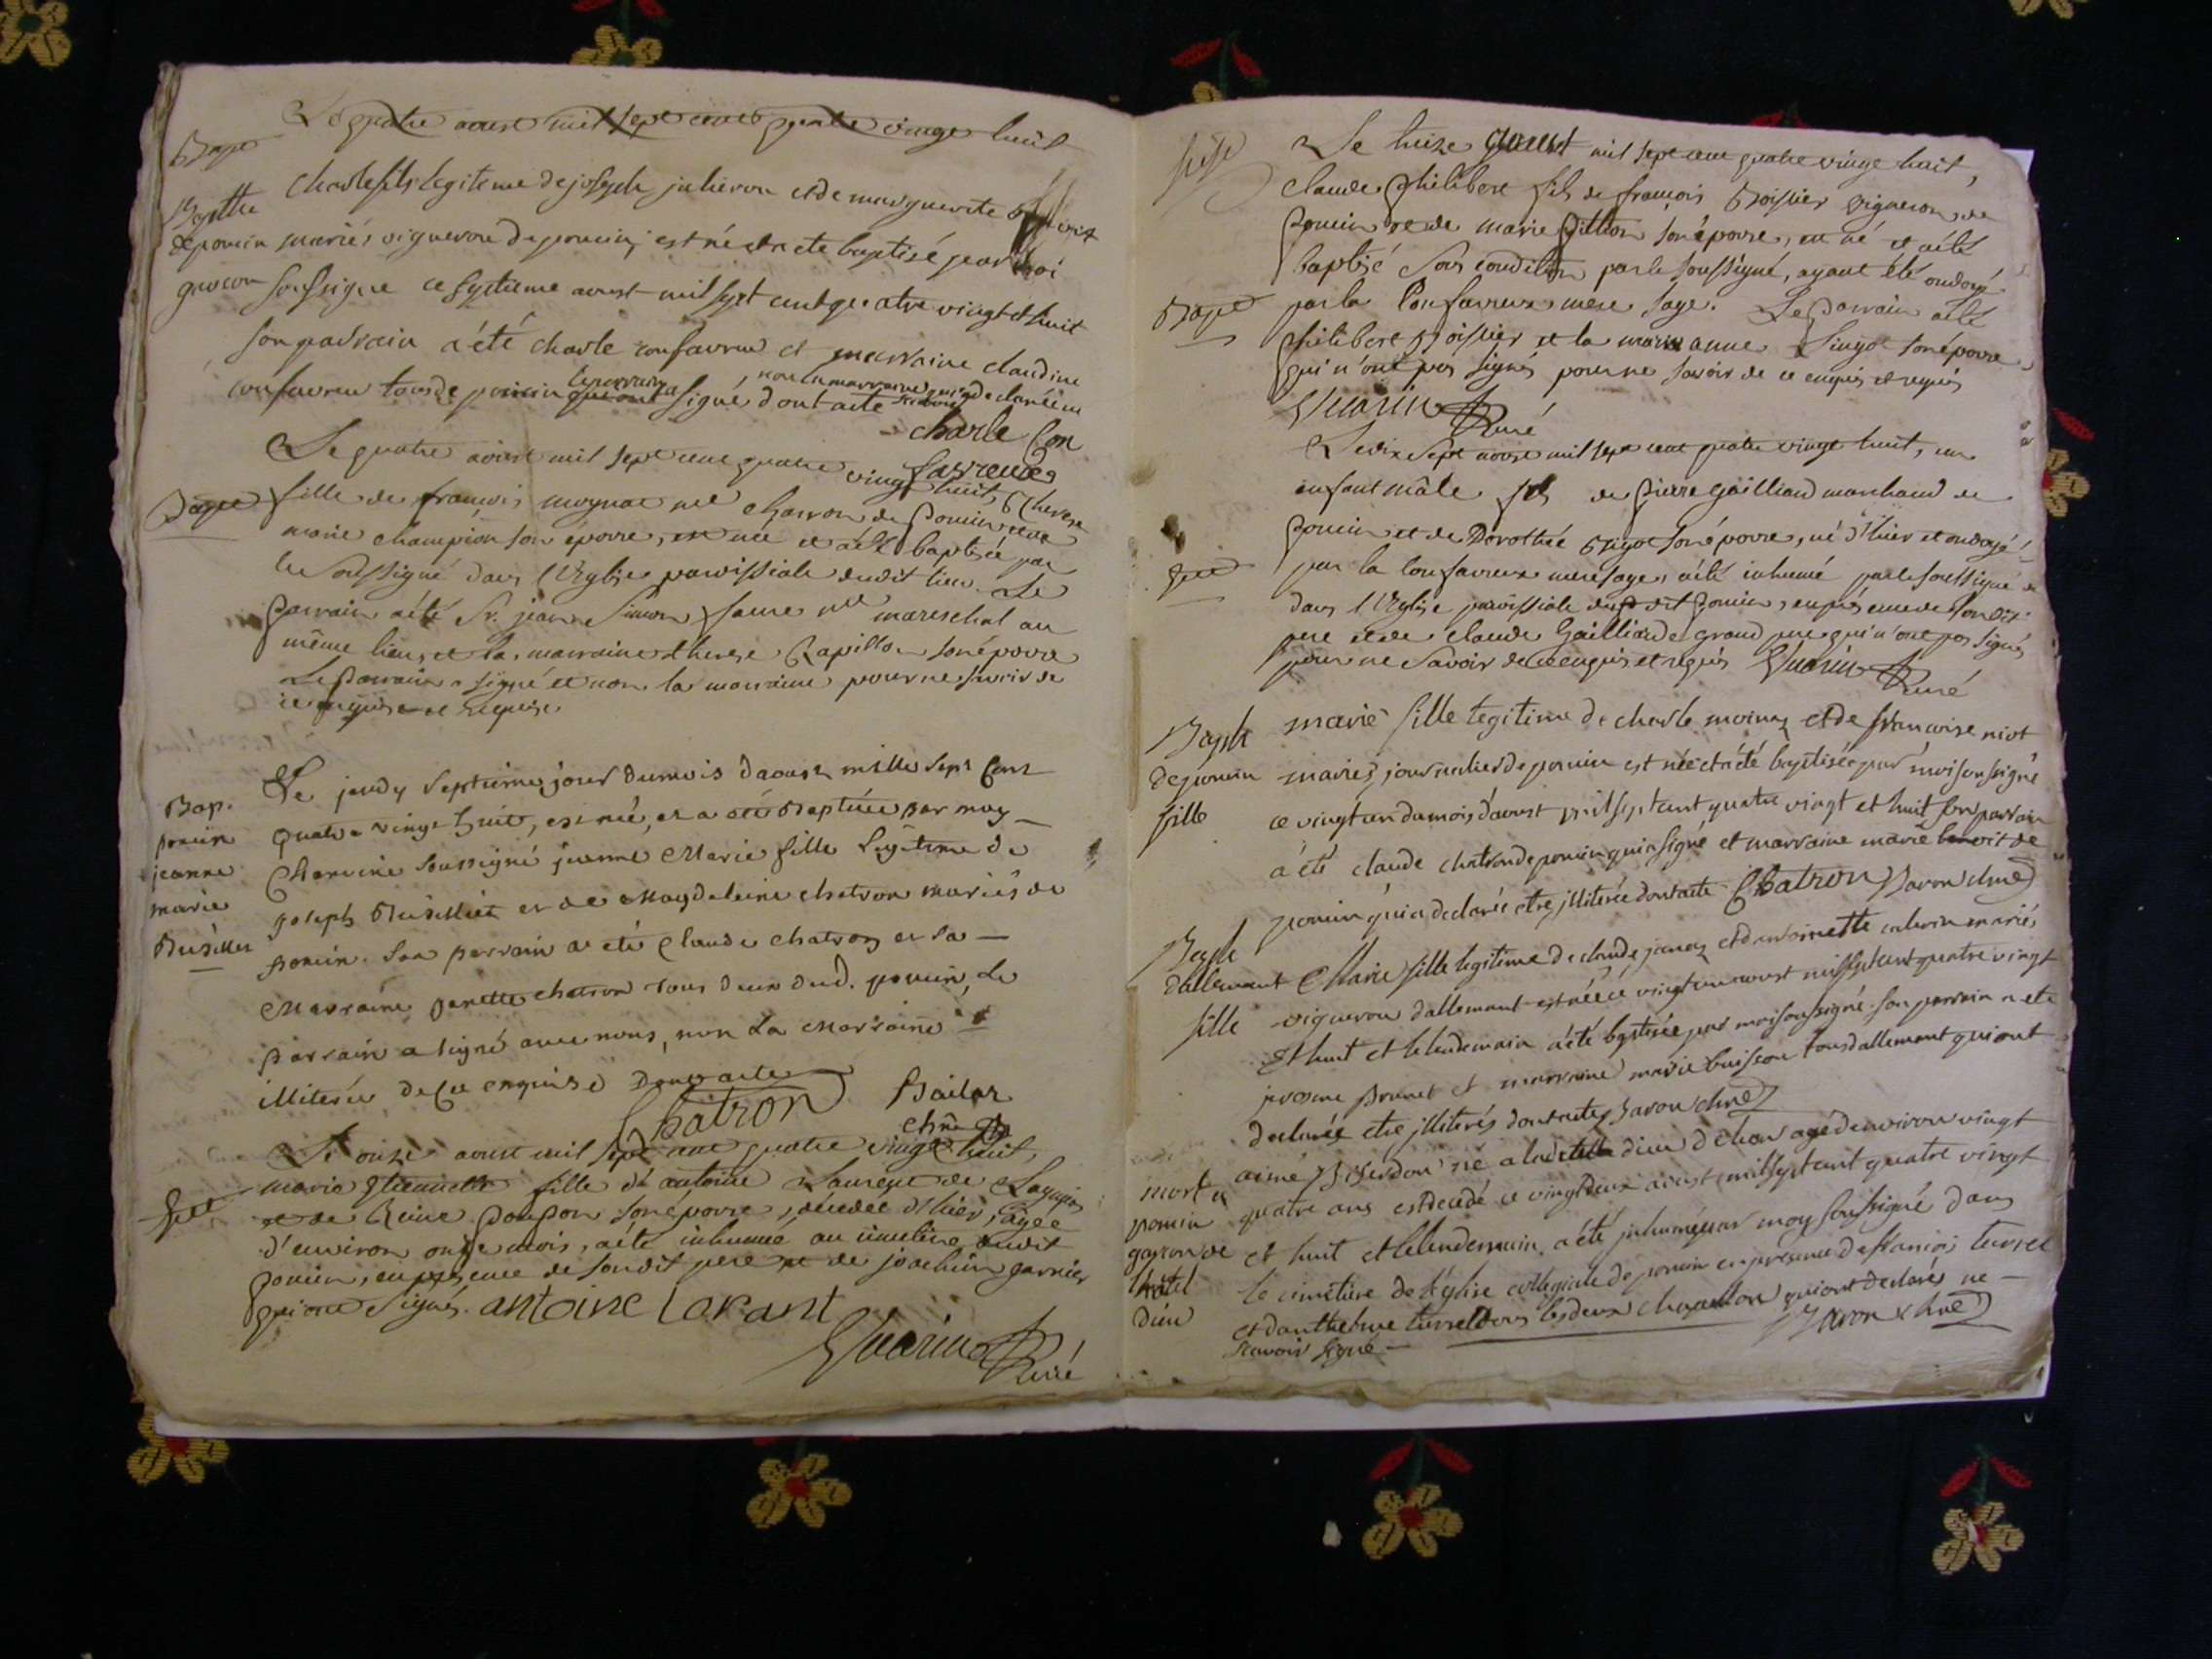 Le quatre aoust mil sept cent quatre vingt huit
Bapt
Baptte charle fils legitime de joseph juheron et de marguerite
de poncin mariés vigneron de poncin est né et a ete baptisé par moi
garcon soussigne ce septieme aoust mil sept cent quatre vingt et huit
son parrain a été charle confavreu et marraine claudine
confavreu tous de poncin le parrain a signé non la marraine qui a declarée ne scavoir dont acte
charle Con
favreux
Le quatre aoust mil sept cent quatre vingt huit, therese
Bapt fille de françois moynat me charron de Poncin et de
marie champion son épouse, est née et a été baptisée par
le soussigné dans l'Eglise paroissiale dudit lieu. Le
parrain a été Sr. jean Simon faure me mareschal au
même lieu, et la marraine therese Rapillon son épouse
Le parrain a signé et non la marraine pour ne savoir de
ce enquise et requise.
Le jeudy septieme jour du mois d'aoust mille sept Cent
Bap. poncin jeanne marie
quatre vingt huit, est née, et a été Baptisée par moy
Chanoine soussigné jeanne Marie fille Legitime de
joseph et de Magdeleine chatron mariés de
poncin. son parrain a eté Claude chatron et sa
Marraine panette chatron tous deux dud. poncin, Le
parrain a signé avec nous, non La Marraine
illiterée de Ce enquise Dont acte
Chatron Bailat
chne
Le onze aoust mil sept cent quatre vingt huit,
marie fille de antoine Laurent de
Sep et de Reine Poupon son épouse, décédée d'hier, agée
d'environ onze mois, a été inhumée au cimetiere dudit
poncin, en presence de son dit pere et de joachim garnier
qui ont signés. antoine Lorant
Guarin Curé
Le treize aoust mil sept cent quatre vingt huit,
claude philibert fils de françois Boissier vigneron de
Poncin et de marie Pillion son épouse, est né et a été
baptisé sous condition par le soussigné, ayant été ondoyé
Bapt par la Confavreux mere sage. Le parrain a été
philibert Boissier et la marie anne son épouse
qui n'ont pas signés pour ne savoir de ce enquis et requis
Guarin Curé
Le dix sept aoust mil sept cent quatre vingt huit, un
enfant mâle fils de Pierre Gailliard marchand de
poncin et de Dorothée son épouse, né d'hier et ondoyé
Sep par la Confavreux mere sage, a été inhumé par le soussigné
dans l'Eglise paroissiale du dit poncin, en presence de son dit
pere et de claude Gailliard grand pere qui n'ont pas signés
pour ne savoir de ce enquis et requis Guarin Curé
Bapte marie fille legitime de charle moinaz et de francoise niot
de poncin mariés, journalier de poncin est née et a été baptisée par moi soussigné
fille ce vingt un du mois d'aoust mil sept cent quatre vingt et huit son parrain
a été claude chatron de poncin qui a signé et marraine marie benoit de
poncin qui a declarée etre jlliterée dont acte Chatron Savon chne
Bapte
dallemant Marie fille legitime de claude janaz et d'antoinette mariés
fille vigneron d'allemant est née ce vingt un aoust mil sept cent quatre vingt
et huit et le lendemain a été baptisée par moi soussigné. son parrain a ete
jerosme prunet et marraine marie buisson tous d'allemant qui ont
declarée etre jlliterés dont acte Savon chne
aimé né a dieu de lion agé d'environ vingt
mort a poncin garcon de hotel Dieu
quatre ans est decedé ce vingt deux aoust mil sept cent quatre vingt
et huit et le lendemain a été jnhumé par moy soussigné dans
le cimetiere de l'église collegiale de poncin en presence de francois turrel
et danthelme turrel tous les deux qui ont declarés ne
scavoir signé Savon chne